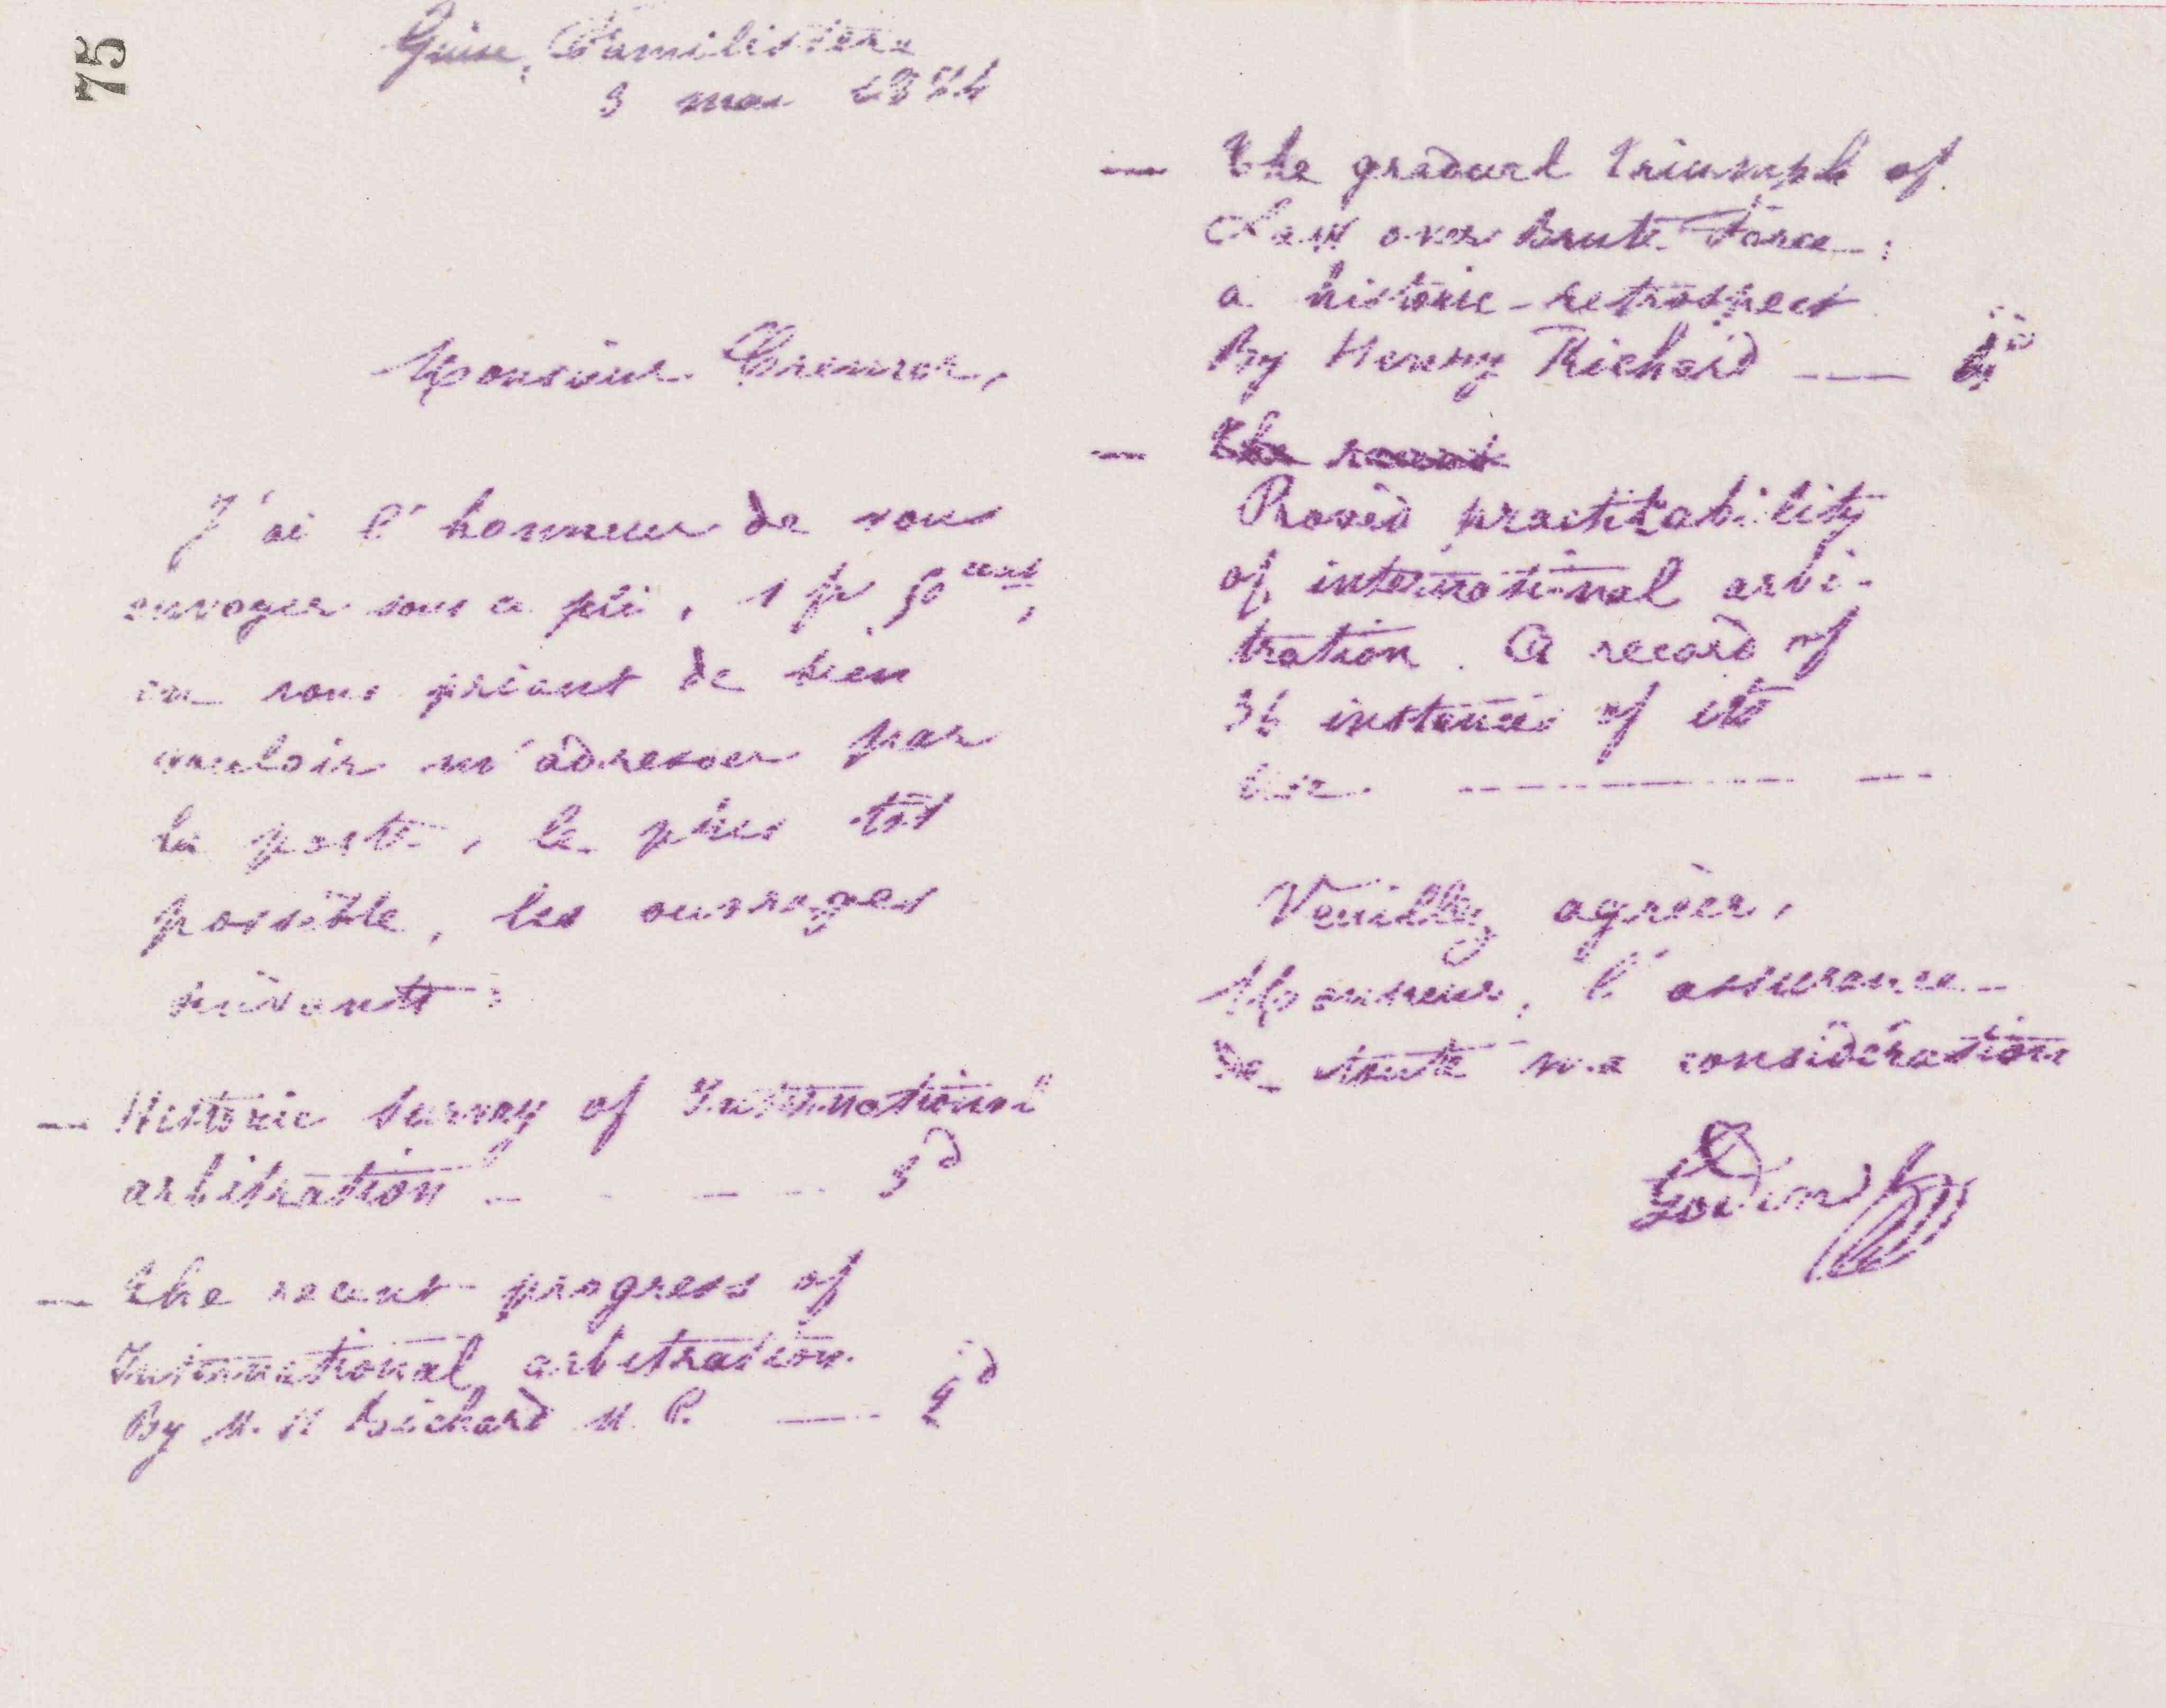 75
Guise, Familistère
3 mai
Monsieur Cremer,
J'ai l'honneur de vous
envoyer sous ce pli, 1 fr 50 cent,
en vous priant de bien
vouloir m'adresser par
la poste, le plus tôt
possible, les ouvrages
suivants :
— Historic survey of International
arbitration - - - - 3d
— The recent progress of
International arbitration
By M. H Richard M. P. —
— The gradual triumph of
Law over Brute Force :
a historic-retrospect
By Henry Richard —
— The recent
Proved practicability
of international arbi-
tration. A record of
instances of its
use. - - - - - -
Veuillez agréer,
Monsieur, l'assurance
de toute ma considération
Godin